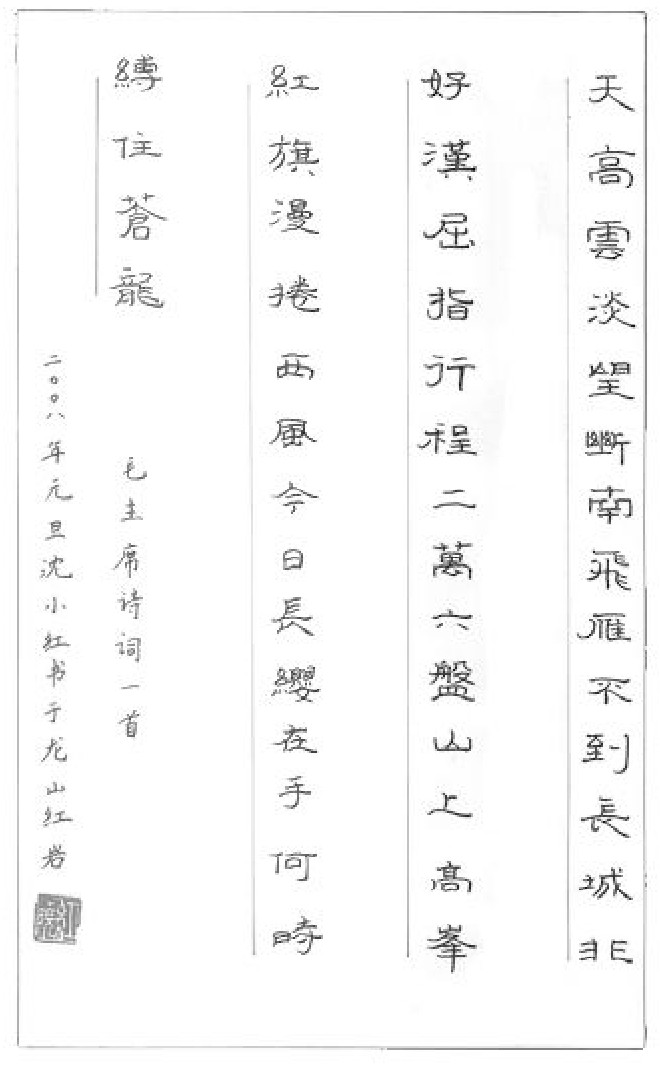 天高雲淡望斷南飛雁不到長城非
好漢屈指行程二萬六盤山上高峯
紅旗漫捲西風今日長纓在手何時
縛住蒼龍
毛主席诗词一首
二〇〇八年元旦沈小红书于龙山红岩